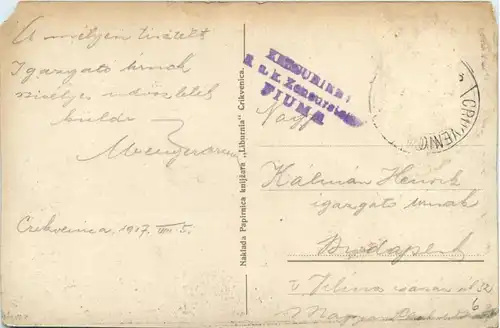 A mélyen tisztelt
Igazgató úrnak
szívélyes üdvözletét
küldi
Crikvenica, 1917. VIII. 5.
Naklada Papirnica knjižara „Liburnia“ Crikvenica.
ZENSURIERT
K. u. k. Zensurstelle
FIUME
CRIKVENICA
Nagys
Kálmán Henrik
igazgató úrnak
Budapest
V Vilmos császár út 32